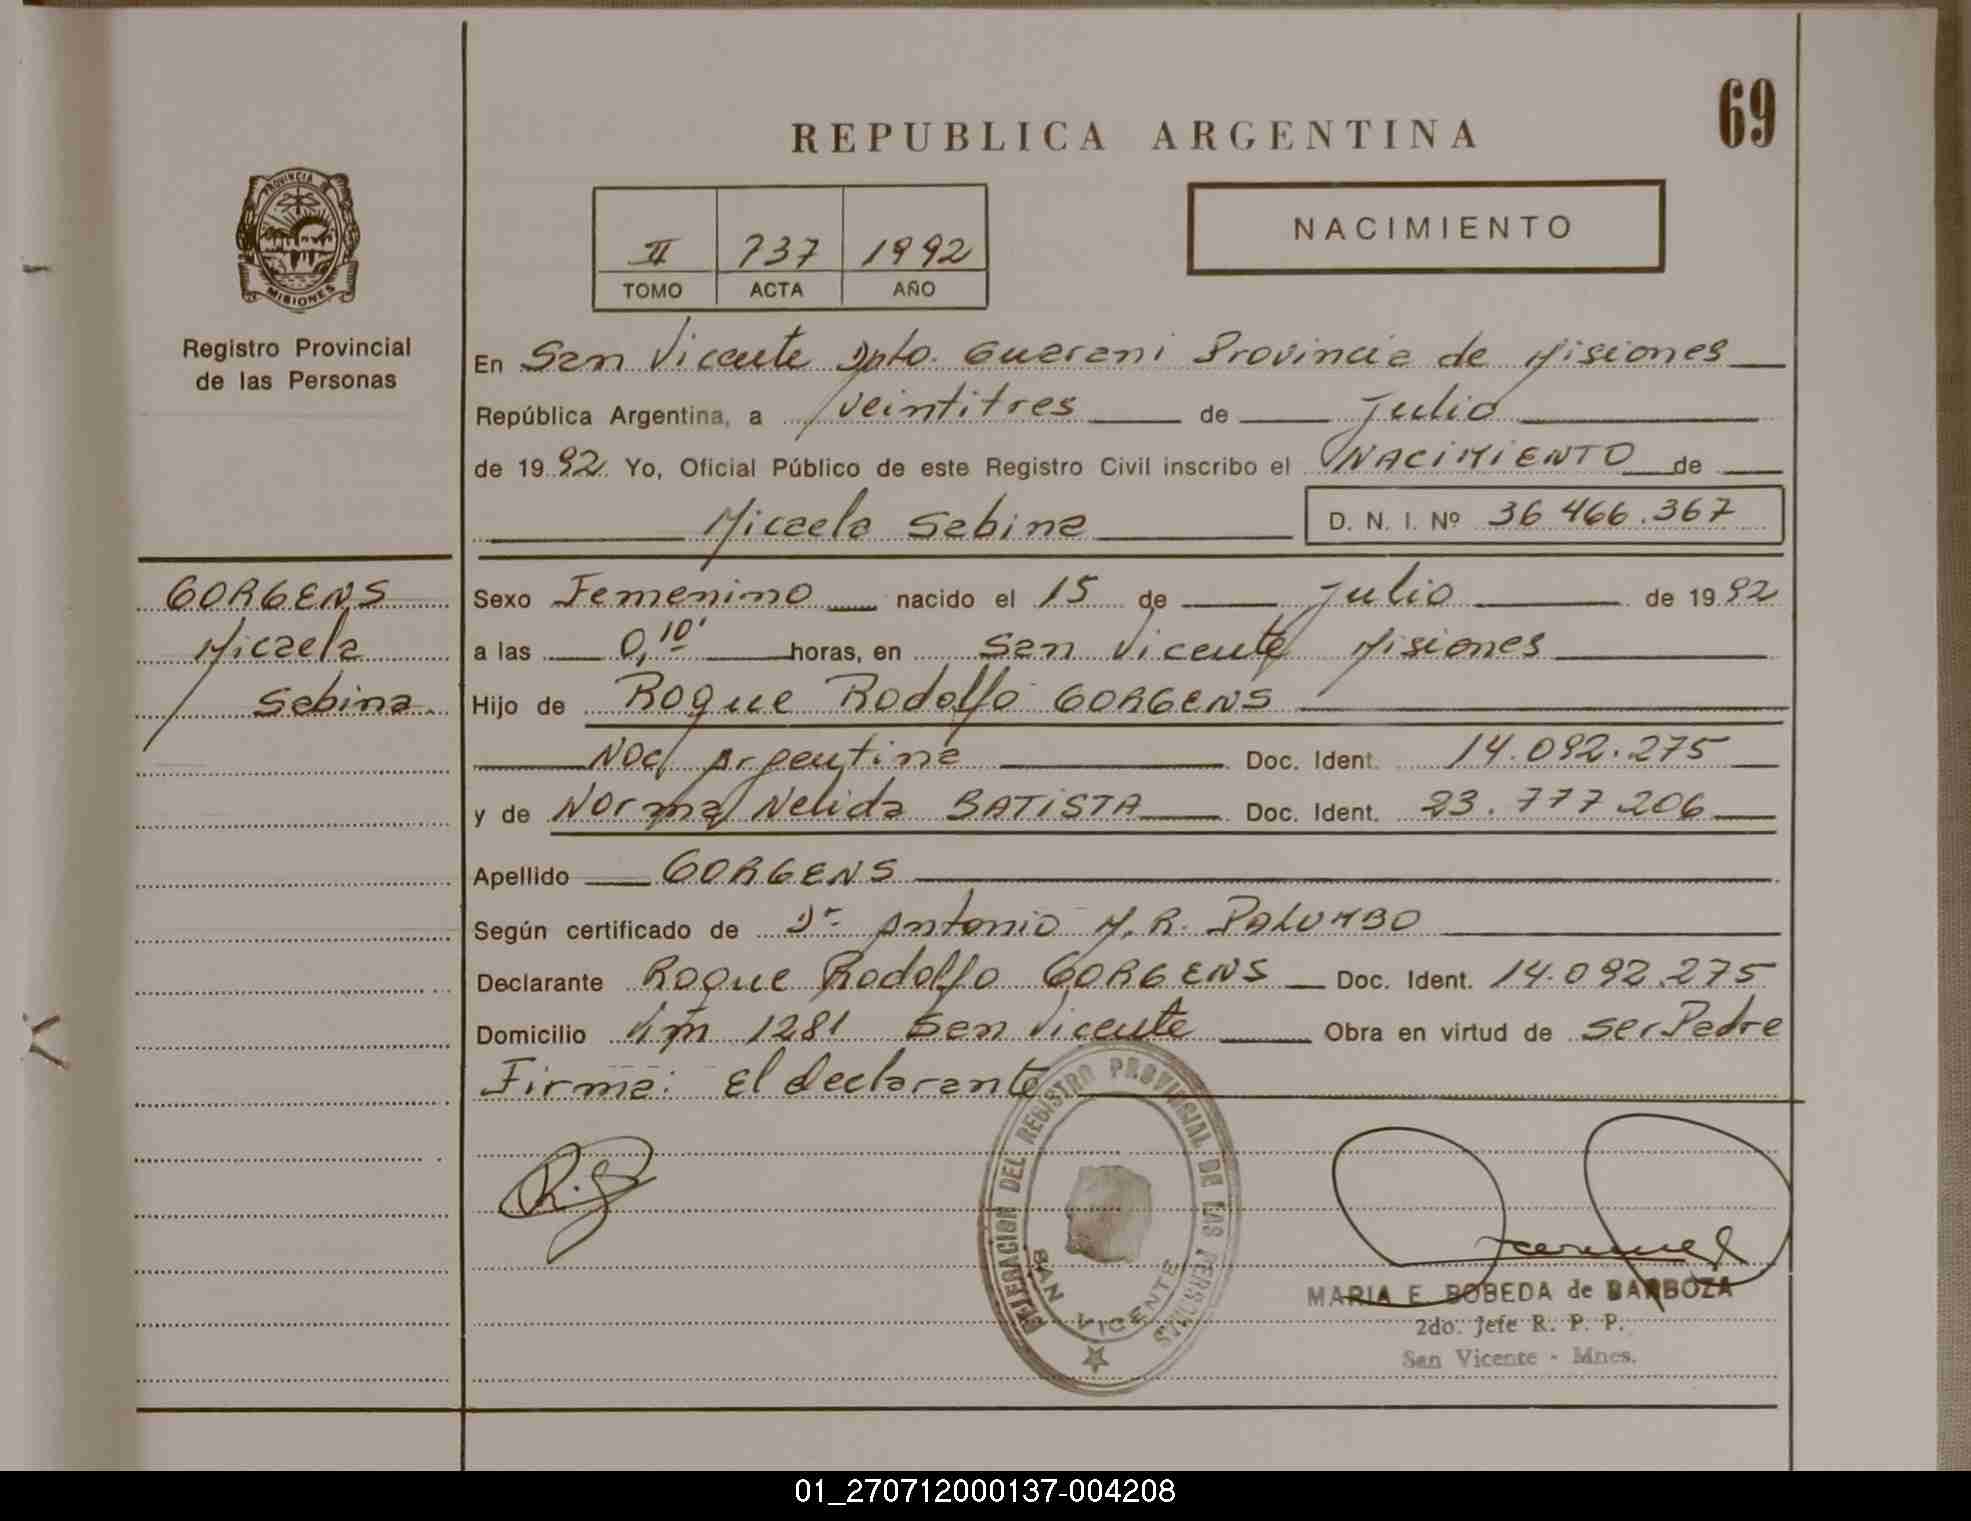 69
REPUBLICA ARGENTINA
PROVINCIA DE
MISIONES
Registro Provincial
de las Personas
II 737 1992
TOMO ACTA AÑO
NACIMIENTO
En San Vicente Dpto. Guarani Provincia de Misiones
República Argentina, a veintitres de Julio
de 1992 Yo, Oficial Público de este Registro Civil inscribo el NACIMIENTO de
Micaela Sabina D. N. I. Nº 36 466.367
GORGENS
Micaela
Sabina
Sexo Femenino nacido el 15 de Julio de 1992
a las 0,10' horas, en San Vicente Misiones
Hijo de Roque Rodolfo GORGENS
Nac Argentina Doc. Ident. 14.092.275
y de Norma Nelida BATISTA Doc. Ident. 23.777.206
Apellido GORGENS
Según certificado de Dr. Antonio M.R. PALUMBO
Declarante Roque Rodolfo GORGENS Doc. Ident. 14.092.275
Domicilio Km 1281 San Vicente Obra en virtud de ser Padre
Firma: El declarante
DELEGACION DEL REGISTRO PROVINCIAL DE LAS PERSONAS
SAN VICENTE
MARIA E. BOBEDA de BARBOZA
2do. Jefe R. P. P.
San Vicente - Mnes.
01_270712000137-004208